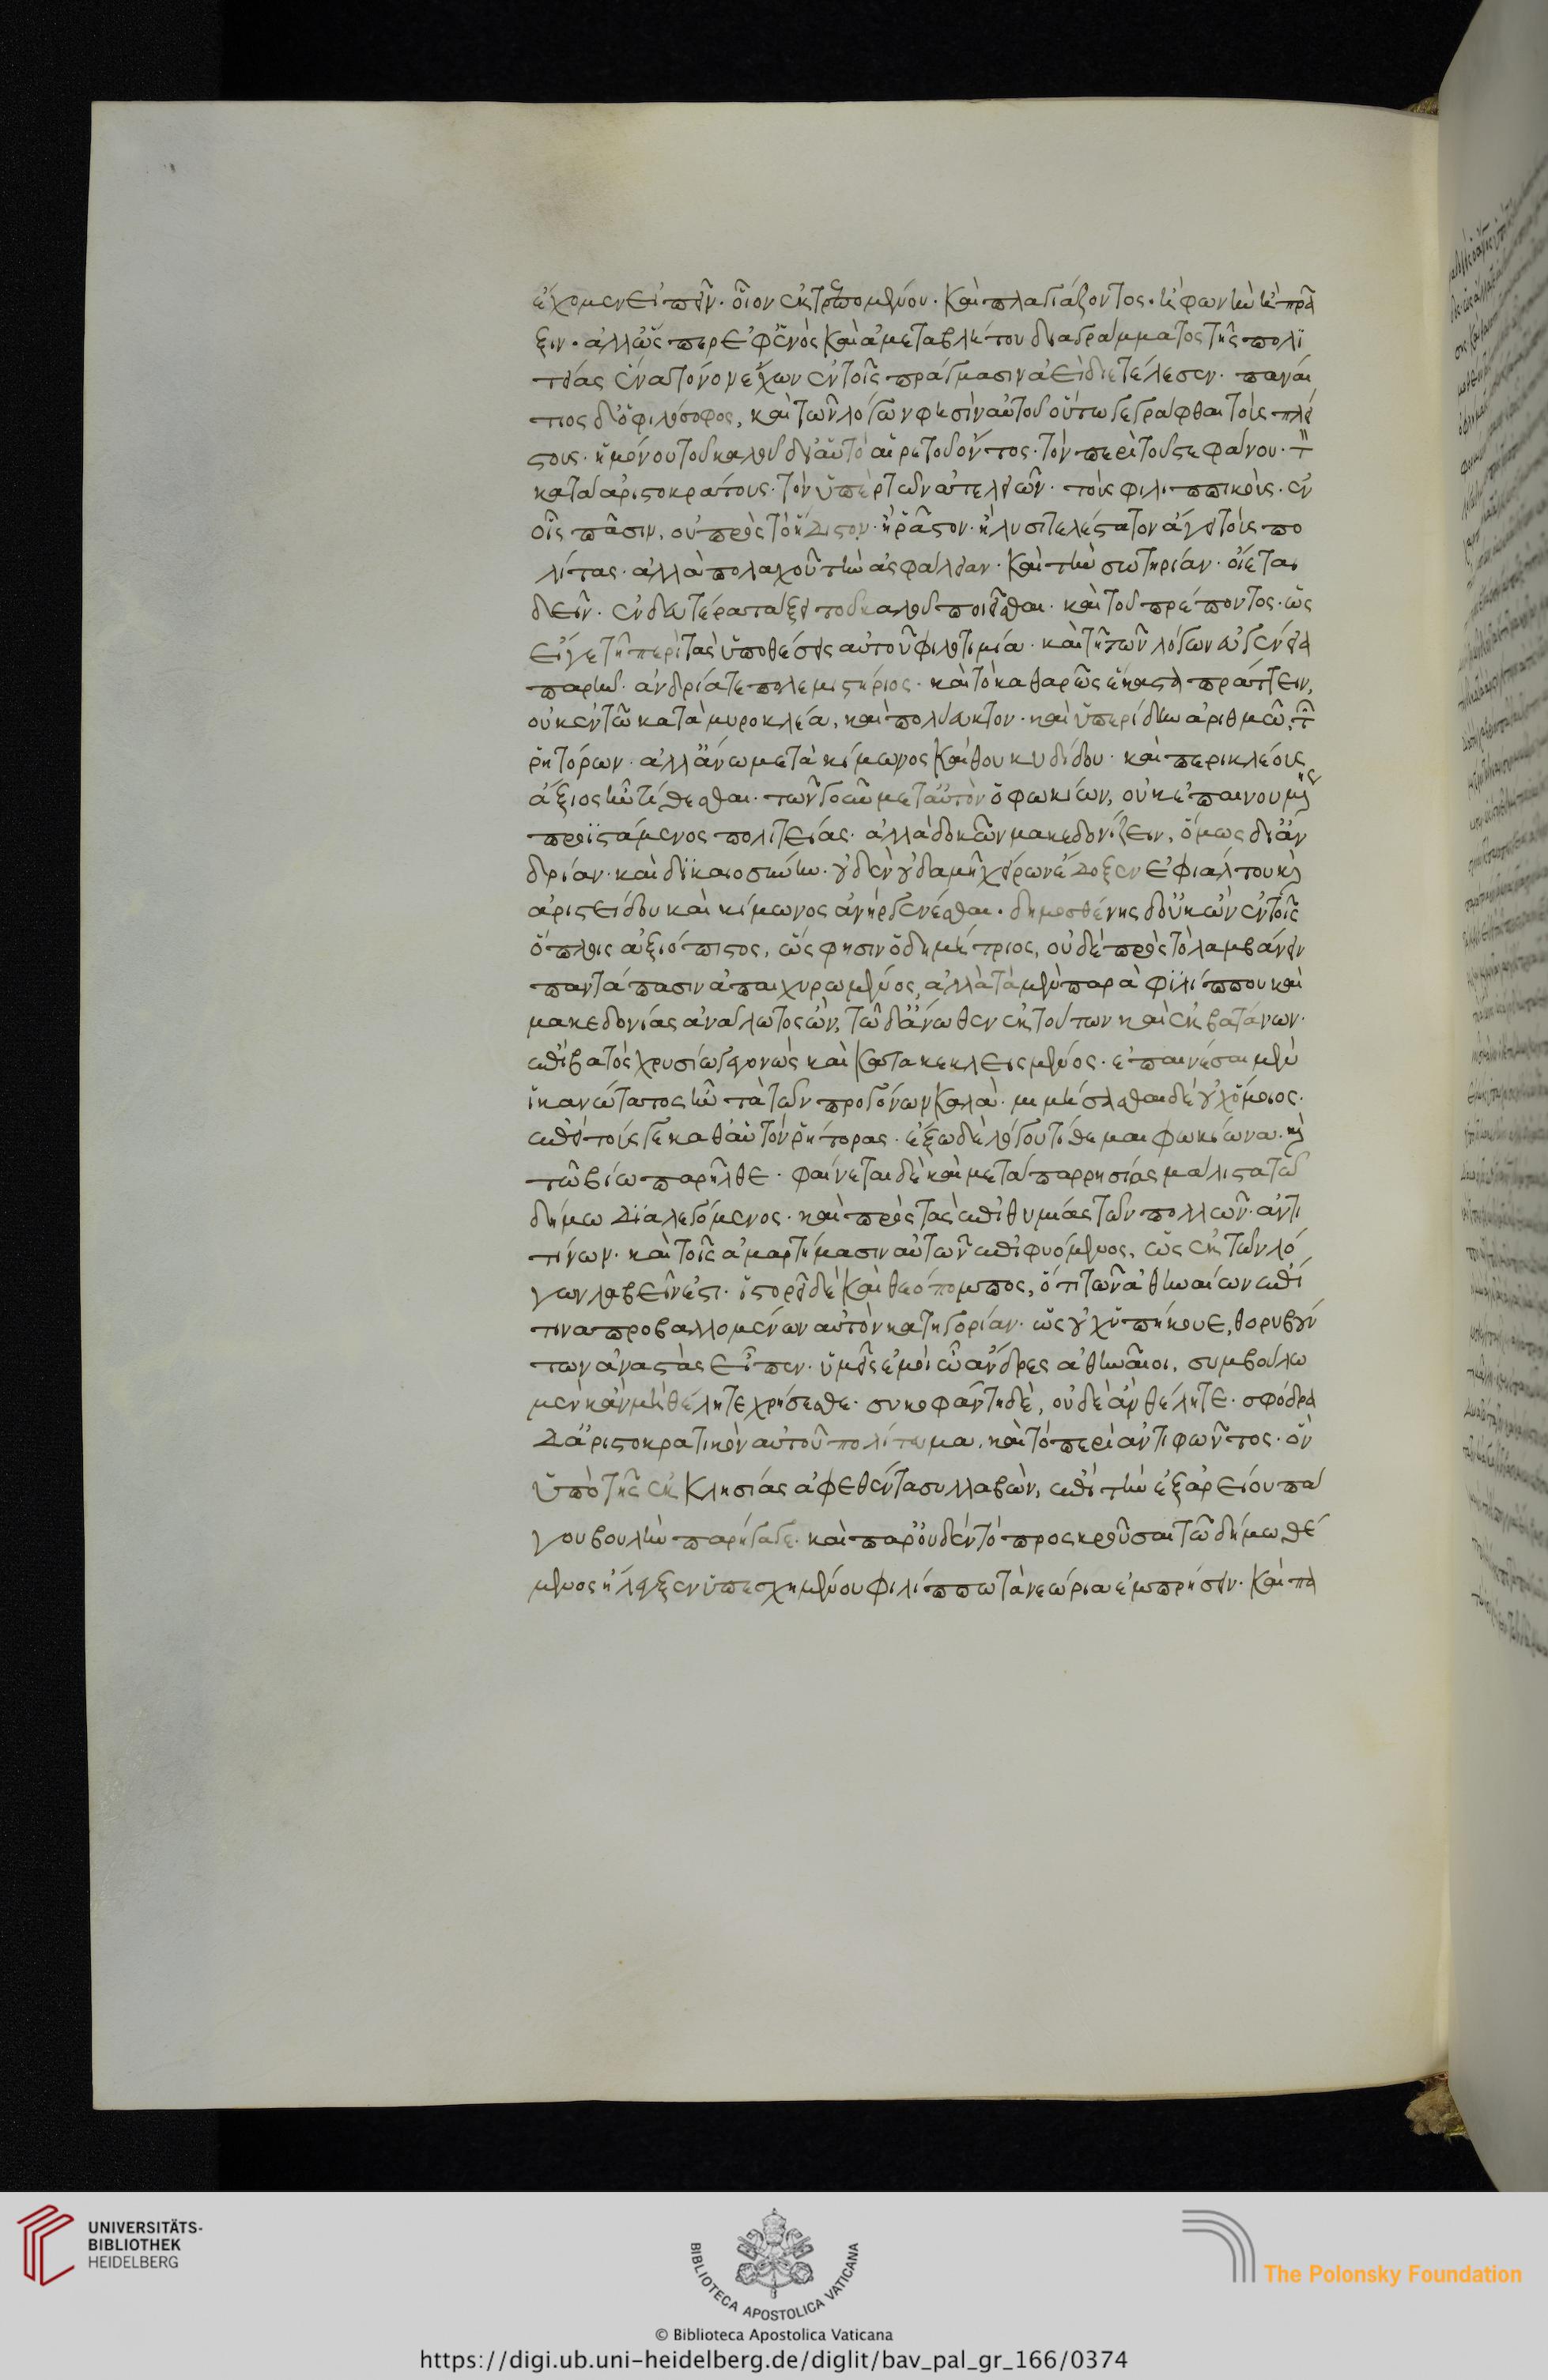 ἔχομεν εἰπεῖν· οἷον ἐκτρεπομένου· καὶ πλαγιάζοντος· ἢ φωνὴν ἢ πρᾶ
ξιν· ἀλλ' ὥσπερ ἐφ' ἑνὸς καὶ ἀμεταβλήτου διαγράμματος τῆς πολι
τείας ἕνα τόνον ἔχων ἐν τοῖς πράγμασιν ἀεὶ διετέλεσεν· παναί
τιος δ' ὁ φιλόσοφος, καὶ τῶν λόγων φησὶν αὐτοῦ οὕτω γεγράφθαι τοὺς πλεί
στους· ἢ μόνου τοῦ καλοῦ δι' αὑτὸ αἱρετοῦ ὄντος· τὸν περὶ τοῦ στεφάνου· τ
κατὰ ἀριστοκράτους· τὸν ὑπὲρ τῶν ἀτελειῶν· τοὺς φιλιππικούς· ἐν
οἷς πᾶσιν, οὐ πρὸς τὸ ἥδιστον· ἢ ρᾶστον· ἢ λυσιτελέστατον ἄγει τοὺς πο
λίτας· ἀλλὰ πολαχοῦ τὴν ἀσφάλειαν· καὶ τὴν σωτηρίαν· οἴεται
δεῖν· ἐν δευτέρα τάξει τοῦ καλοῦ ποιεῖσθαι· καὶ τοῦ πρέποντος· ὡς
εἴγε τῆ περὶ τὰς ὑποθέσεις αὐτοῦ φιλοτιμία· καὶ τῆ τῶν λόγων εὐγενεία
παρῆν· ἀνδρία τε πολεμιστήριος· καὶ τὸ καθαρῶς ἕκαστα πράττειν,
οὐκ ἐν τῶ κατὰ μυροκλέα, καὶ πολύευκτον· καὶ ὑπερίδην ἀριθμῶ, τ
ρητόρων· ἀλλ' ἄνω μετὰ κίμωνος καὶ θουκυδίδου· καὶ περικλέους
ἄξιος ἦν τίθεσθαι· τῶν γοῦν μετ' αὐτὸν ὁ φωκίων, οὐκ ἐπαινουμένης
προϊστάμενος πολιτείας· ἀλλὰ δοκῶν μακεδονίζειν, ὅμως δι' ἀν
δρίαν· καὶ δικαιοσύνην· οὐδὲν οὐδαμῆ χείρων ἔδοξεν ἐφιάλτου καὶ
ἀριστείδου καὶ κίμωνος ἀνὴρ γενέσθαι· δημοσθένης δ' οὐκ ὢν ἐν τοῖς
ὅπλοις ἀξιόπιστος, ὥς φησιν ὁ δημήτριος, οὐδὲ πρὸς τὸ λαμβάνειν
παντάπασιν ἀπωχυρωμένος, ἀλλὰ τὰ μὲν παρὰ φιλίππου καὶ
μακεδονίας ἀνάλωτος ὤν, τῶ δ' ἄνωθεν ἐκ τούτων καὶ ἐκβατάνων·
ἐπιβατὸς χρυσίω γεγονὼς καὶ κατακεκλεισμένος· ἐπαινέσαι μὲν
ἱκανώτατος ἦν τὰ τῶν προγόνων καλὰ· μιμήσασθαι δὲ οὐχ ὅμοιος·
ἐπεὶ τούς γε καθ' αὑτὸν ρήτορας· ἔξω δὲ λόγου τίθεμαι φωκίωνα· καὶ
τῶ βίω παρῆλθε· φαίνεται δὲ καὶ μετὰ παρρησίας μάλιστα τῶ
δήμω διαλεγόμενος· καὶ πρὸς τὰς ἐπιθυμίας τῶν πολλῶν· ἀντι
τείνων· καὶ τοῖς ἁμαρτήμασιν αὐτῶν ἐπιφυόμενος, ὡς ἐκ τῶν λό
γων λαβεῖν ἐστι· ἱστορεῖ δὲ καὶ θεόπομπος, ὅτι τῶν ἀθηναίων ἐπί
τινα προβαλλομένων αὐτὸν κατηγορίαν· ὡς οὐχ ὑπήκουε, θορυβού
των ἀναστὰς εἶπεν· ὑμεῖς ἐμοὶ ὦ ἄνδρες ἀθηναῖοι, συμβούλω
μὲν κἂν μὴ θέλητε χρήσεσθε· συκοφάντη δὲ, οὐδὲ ἂν θέλητε· σφόδρα
δ' ἀριστοκρατικὸν αὐτοῦ πολίτευμα, καὶ τὸ περὶ ἀντιφῶντος· ὃν
ὑπὸ τῆς ἐκκλησίας ἀφεθέντα συλλαβὼν, ἐπὶ τὴν ἐξ ἀρείου πά
γου βουλὴν παρήγαγε· καὶ παρ' οὐδὲν τὸ προσκροῦσαι τῶ δήμω θέ
μενος ἤλεγξεν ὑπεσχημένον φιλίππω τὰ νεώρια ἐμπρήσειν· καὶ πα
UNIVERSITÄTS-
BIBLIOTHEK
HEIDELBERG
BIBLIOTECA APOSTOLICA VATICANA
The Polonsky Foundation
© Biblioteca Apostolica Vaticana
https://digi.ub.uni-heidelberg.de/diglit/bav_pal_gr_166/0374